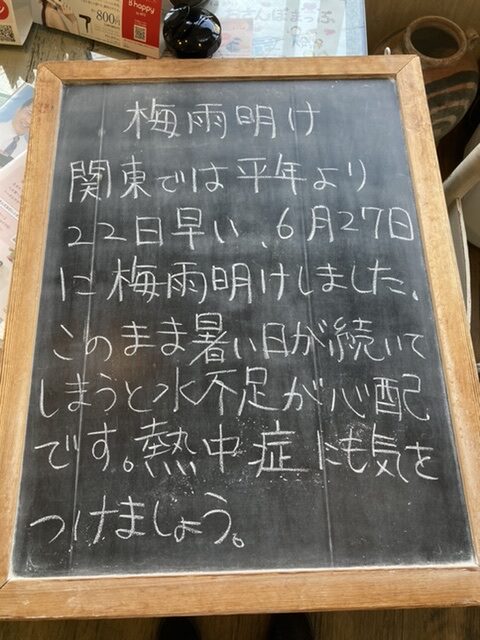 800円
B happy
梅雨明け
関東では平年より
22日早い、6月27日
に梅雨明けしました、
このまま暑い日が続いて
しまうと水不足が心配
です。熱中症にも気を
つけましょう。